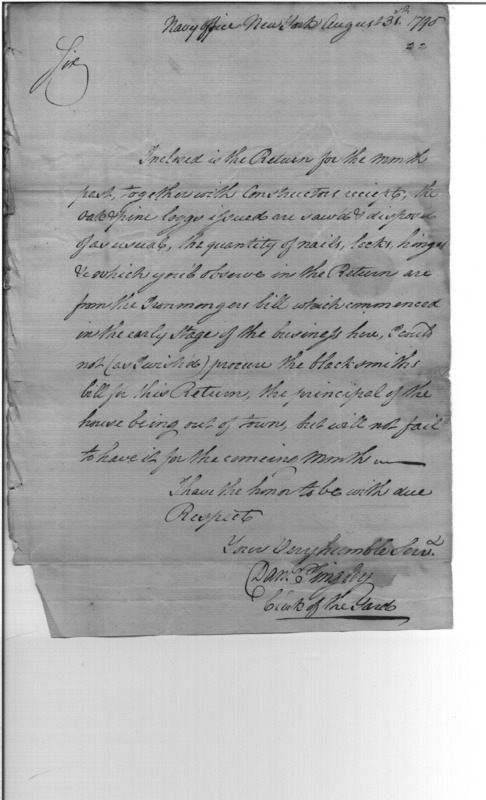 Navy Office New York August 31st. 1795
22
Sir
Inclosed is the Return for the month
past, together with Constructors receipts, the
Oak & pine loggs issued are sawd & disposd
of as usual, the quantity of nails, locks, hinges
&c which you'l observe in the Return are
from the Ironmongers bill which commenced
in the early Stage of the business here, I could
not (as I wish'd) procure the blacksmiths
bill for this Return, the principal of the
house being out of town, but will not fail
to have it for the comeing Month
I have the honor to be with due
Respect
Your Very humble Servt.
Danl.
Clerk of the Yard